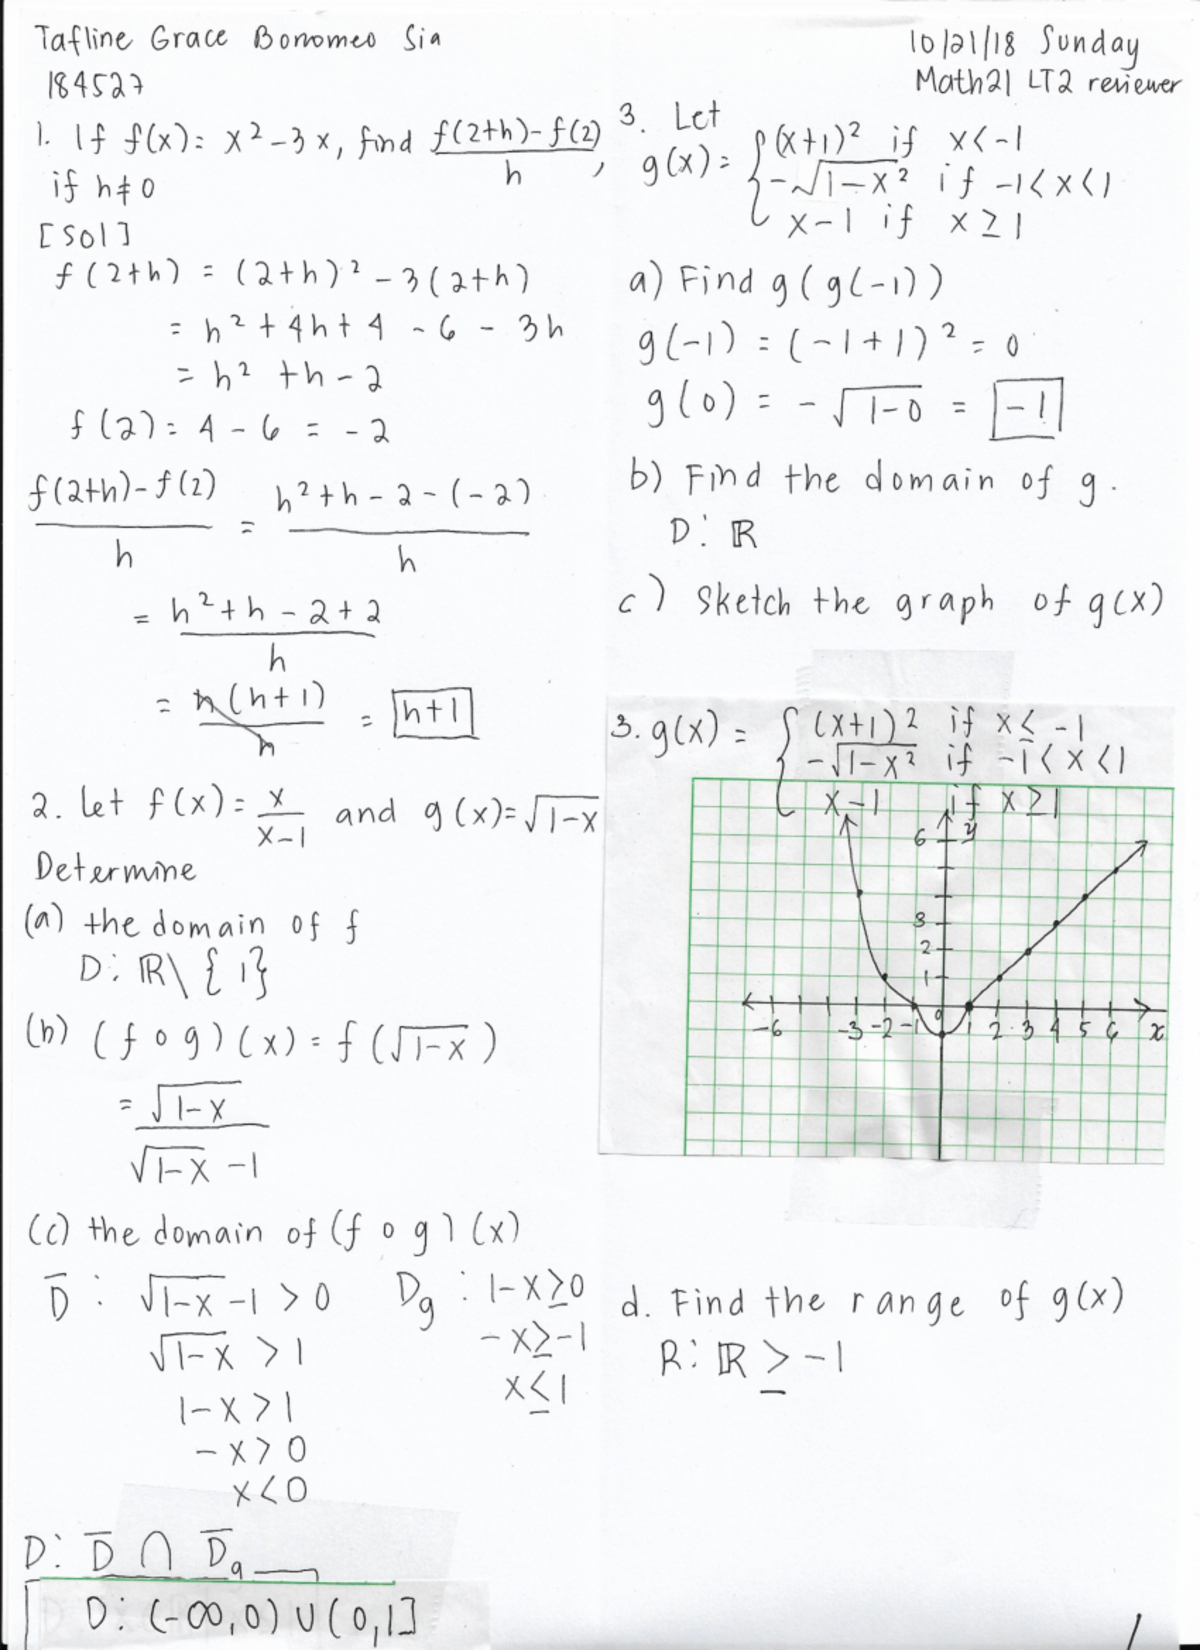 Tafline Grace Bonomeo Sia
184527
10/21/18 Sunday
Math21 LT2 reviewer
1. If f(x) = x² - 3x, find f(2+h)-f(2) / h,
if h≠0
[sol]
f(2+h) = (2+h)² - 3(2+h)
= h² + 4h + 4 - 6 - 3h
= h² + h - 2
f(2) = 4 - 6 = -2
f(2+h)-f(2) / h = h² + h - 2 - (-2) / h
= h² + h - 2 + 2 / h
= h(h+1) / h = h+1
2. let f(x) = x / x-1 and g(x) = √1-x
Determine
(a) the domain of f
D: ℝ\{1}
(b) (f o g)(x) = f(√1-x)
= √1-x / √1-x - 1
(c) the domain of (f o g)(x)
D̄ : √1-x - 1 > 0
√1-x > 1
1-x > 1
-x > 0
x < 0
Dg : 1-x ≥ 0
-x ≥ -1
x ≤ 1
D: D̄ ∩ D̄g
D: (-∞, 0) ∪ (0, 1]
3. Let
g(x) = { (x+1)² if x < -1
-√1-x² if -1 < x < 1
x-1 if x ≥ 1
a) Find g(g(-1))
g(-1) = (-1+1)² = 0
g(0) = -√1-0 = -1
b) Find the domain of g.
D: ℝ
c) Sketch the graph of g(x)
3. g(x) = { (x+1)² if x ≤ -1
-√1-x² if -1 < x < 1
x-1 if x ≥ 1
6 y
3
2
1
-6 -3 -2 -1 0 1 2 3 4 5 6 x
d. Find the range of g(x)
R: ℝ ≥ -1
1